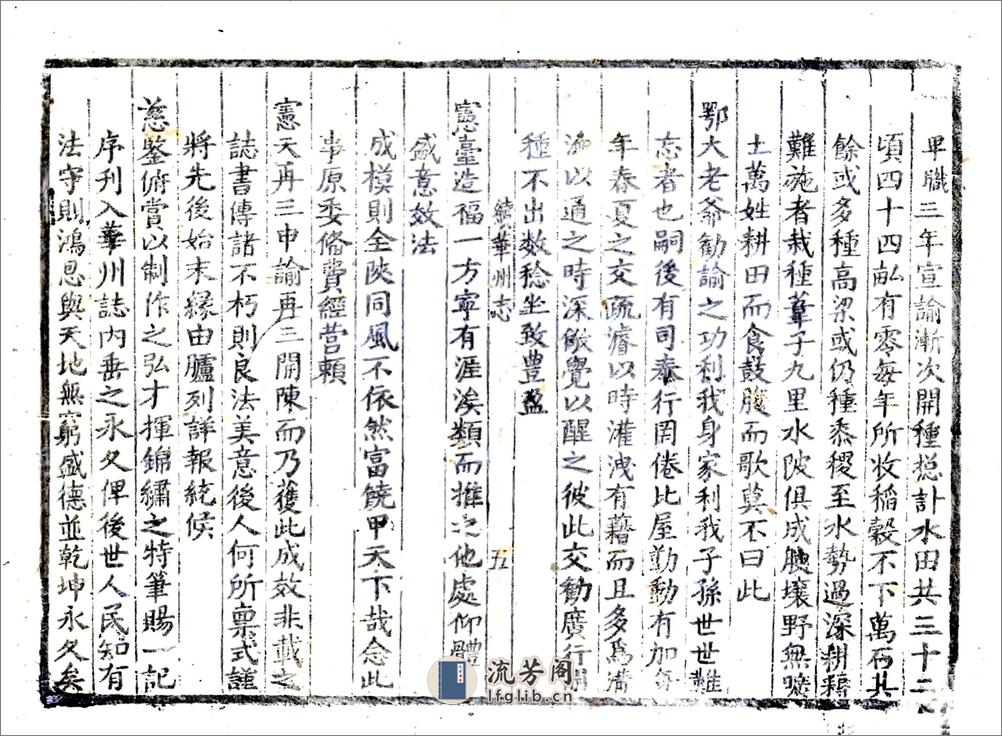 卑職三年宣諭漸次開種緫計水田共三十二
頃四十四畝有零每年所收稻穀不下萬石其
餘或多種高梁或仍種黍稷至水勢過深耕耨
難施者栽種葦子九里水陂俱成腴壤野無曠
土萬姓耕田而食鼓腹而歌莫不曰此
鄂大老爺勸諭之功利我身家利我子孫世世難
忘者也嗣後有司奉行罔倦比屋勤動有加每
年春夏之交疏濬以時灌洩有藉而且多為
以通之時深儆覺以醒之彼此交勸廣行
種不出数稔坐致豊盈
續華州志
五
憲臺造福一方寧有涯涘類而推之他處仰體
盛意效法
成模則全陝同風不依然富饒甲天下哉念此
事原委俻費經營頼
憲天再三申諭再三開陳而乃獲此成效非載之
誌書傳諸不朽則良法美意後人何所禀式謹
將先後始末縁由臚列詳報統候
慈鑒俯賞以制作之弘才揮錦繡之特筆賜一記
序刊入華州誌内垂之永久俾後世人民知有
法守則鴻恩與天地無窮盛德並乾坤永久矣
流芳阁
lfglib.cn